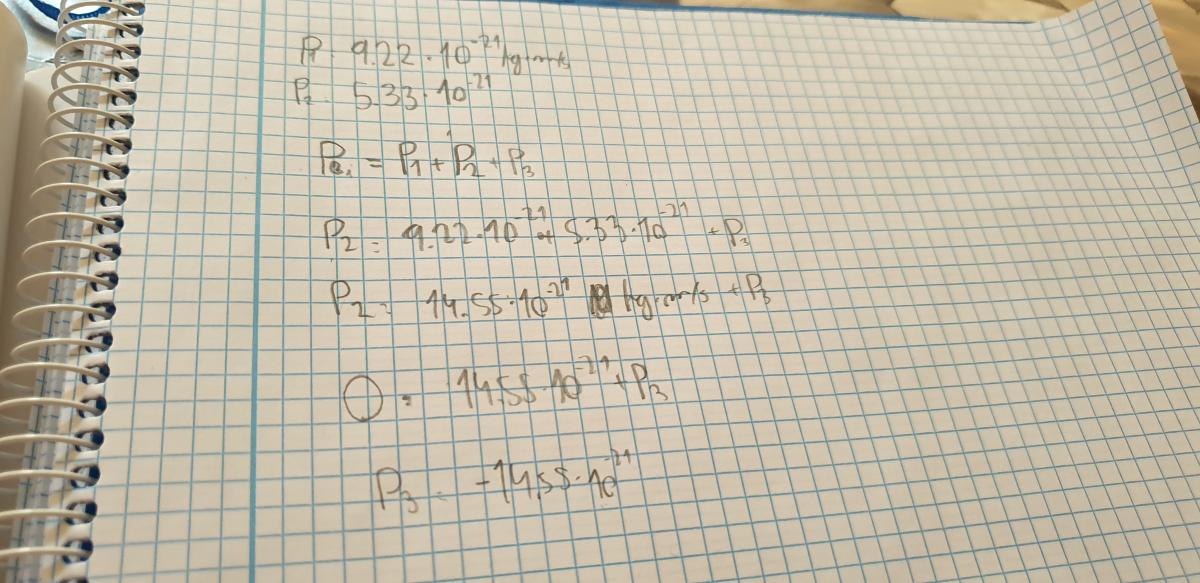 P1 = 9.22 · 10^-21 kg·m/s
P2 = 5.33 · 10^-21
= P1 + P2 + P3
P2 = 9.22·10^-21 + 5.33·10^-21 + P3
P2 = 14.55·10^-21 kg·m/s + P3
0 = 14,55·10^-21 + P3
P3 = -14,55·10^-21